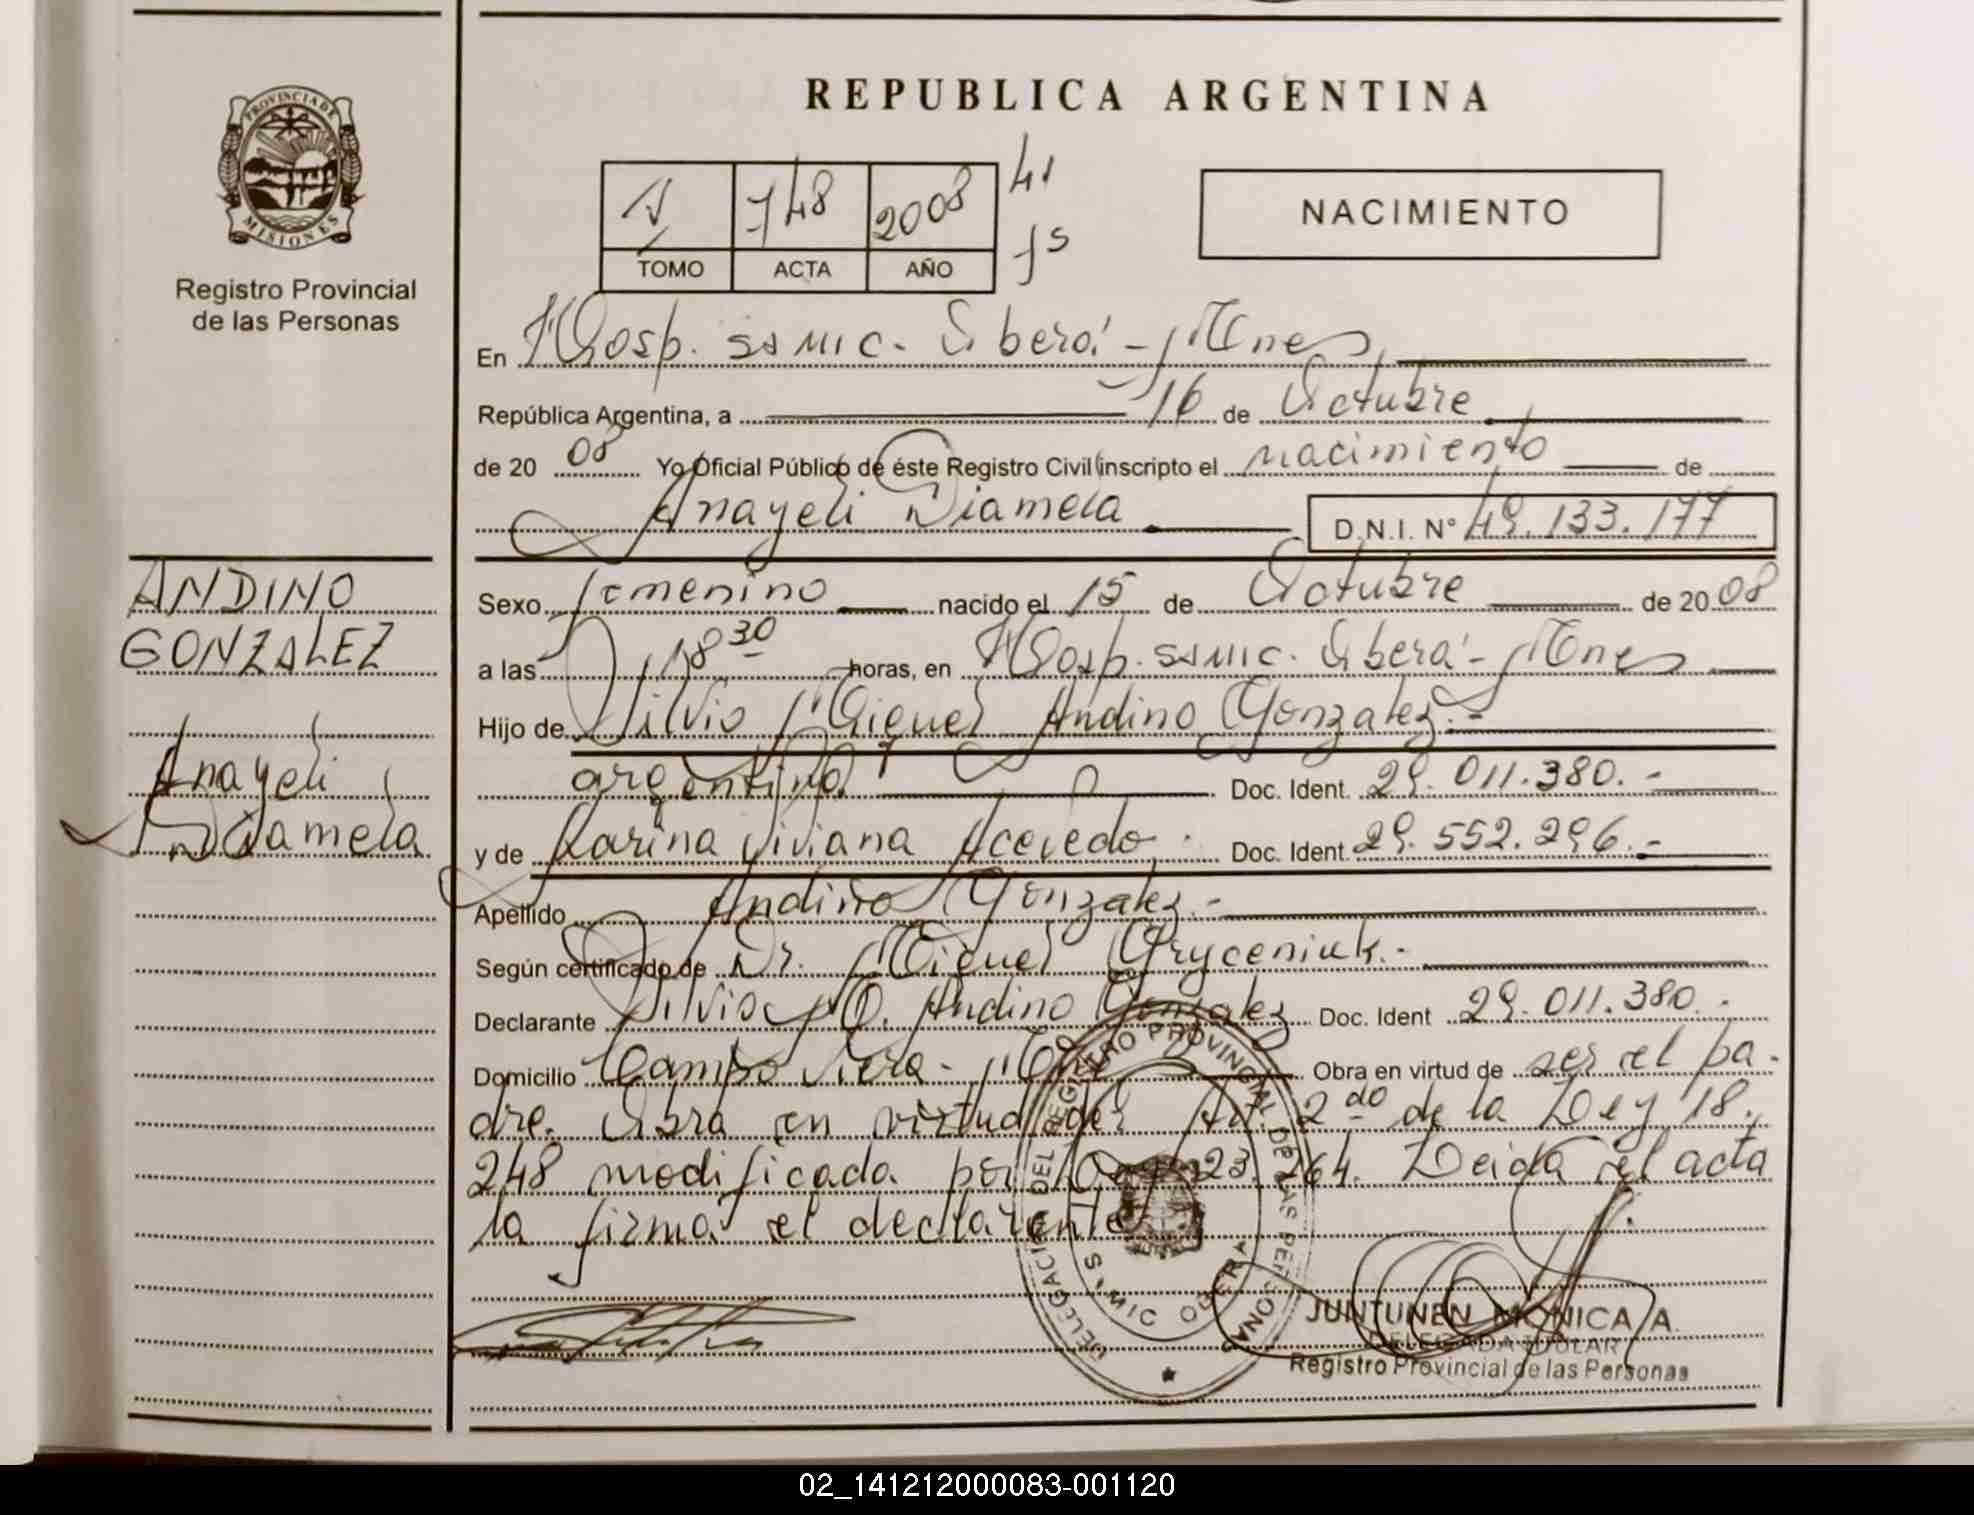 REPUBLICA ARGENTINA
PROVINCIA DE
MISIONES
Registro Provincial
de las Personas
748 2008
TOMO ACTA AÑO
NACIMIENTO
En Hosp. SAMIC. Oberá - Mnes
República Argentina, a 16 de Octubre
de 20 08 Yo Oficial Público de éste Registro Civil inscripto el nacimiento de
Anayeli Diamela D.N.I. N° 49.133.177
ANDINO
GONZALEZ
Anayeli
Diamela
Sexo femenino nacido el 15 de Octubre de 20 08
a las 18 30 horas, en Hosp. SAMIC. Oberá - Mnes
Hijo de Silvio Miguel Andino Gonzalez.-
argentino Doc. Ident. 29.011.380.-
y de Karina Viviana Acevedo. Doc. Ident 29.552.296.-
Apellido Andino Gonzalez.-
Según certificado de Dr. Miguel Gryceniuk.-
Declarante Silvio M. Andino Gonzalez Doc. Ident 29.011.380.-
Domicilio Campo Viera - Mnes Obra en virtud de ser el pa-
dre. Obra en virtud del Art 2do de la Ley 18.
248 modificada por Ley 23.264. Leida el acta
la firma el declarante
DELEGACION DEL REGISTRO PROVINCIAL DE LAS PERSONAS
SAMIC OBERA
JUNTUNEN MONICA A.
DELEGADA TITULAR
Registro Provincial de las Personas
02_141212000083-001120